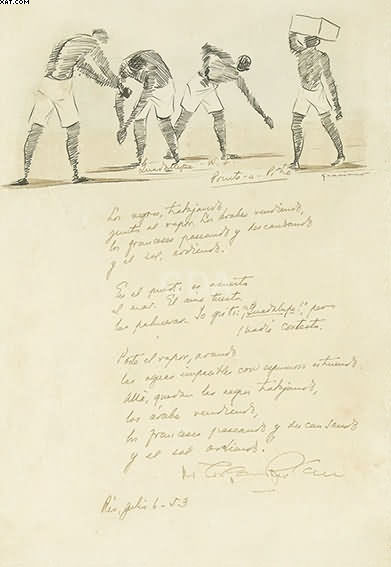 XAT.COM
Guadalupe - W. I.
Pointe-à-Pitre
Los negros, trabajando
junto al vapor. Los árabes vendiendo,
los franceses paseando y descansando
y el sol, ardiendo.
En el puerto se acuesta
el mar. El aire tuesta
las palmeras. Yo grito: ¡Guadalupe!, pero
nadie contesta.
Parte el vapor, arando
las aguas impasibles con espumoso estruendo.
Allá, quedan los negros trabajando,
los árabes vendiendo,
los franceses paseando y descansando
y el sol ardiendo.
Río, julio 6-53